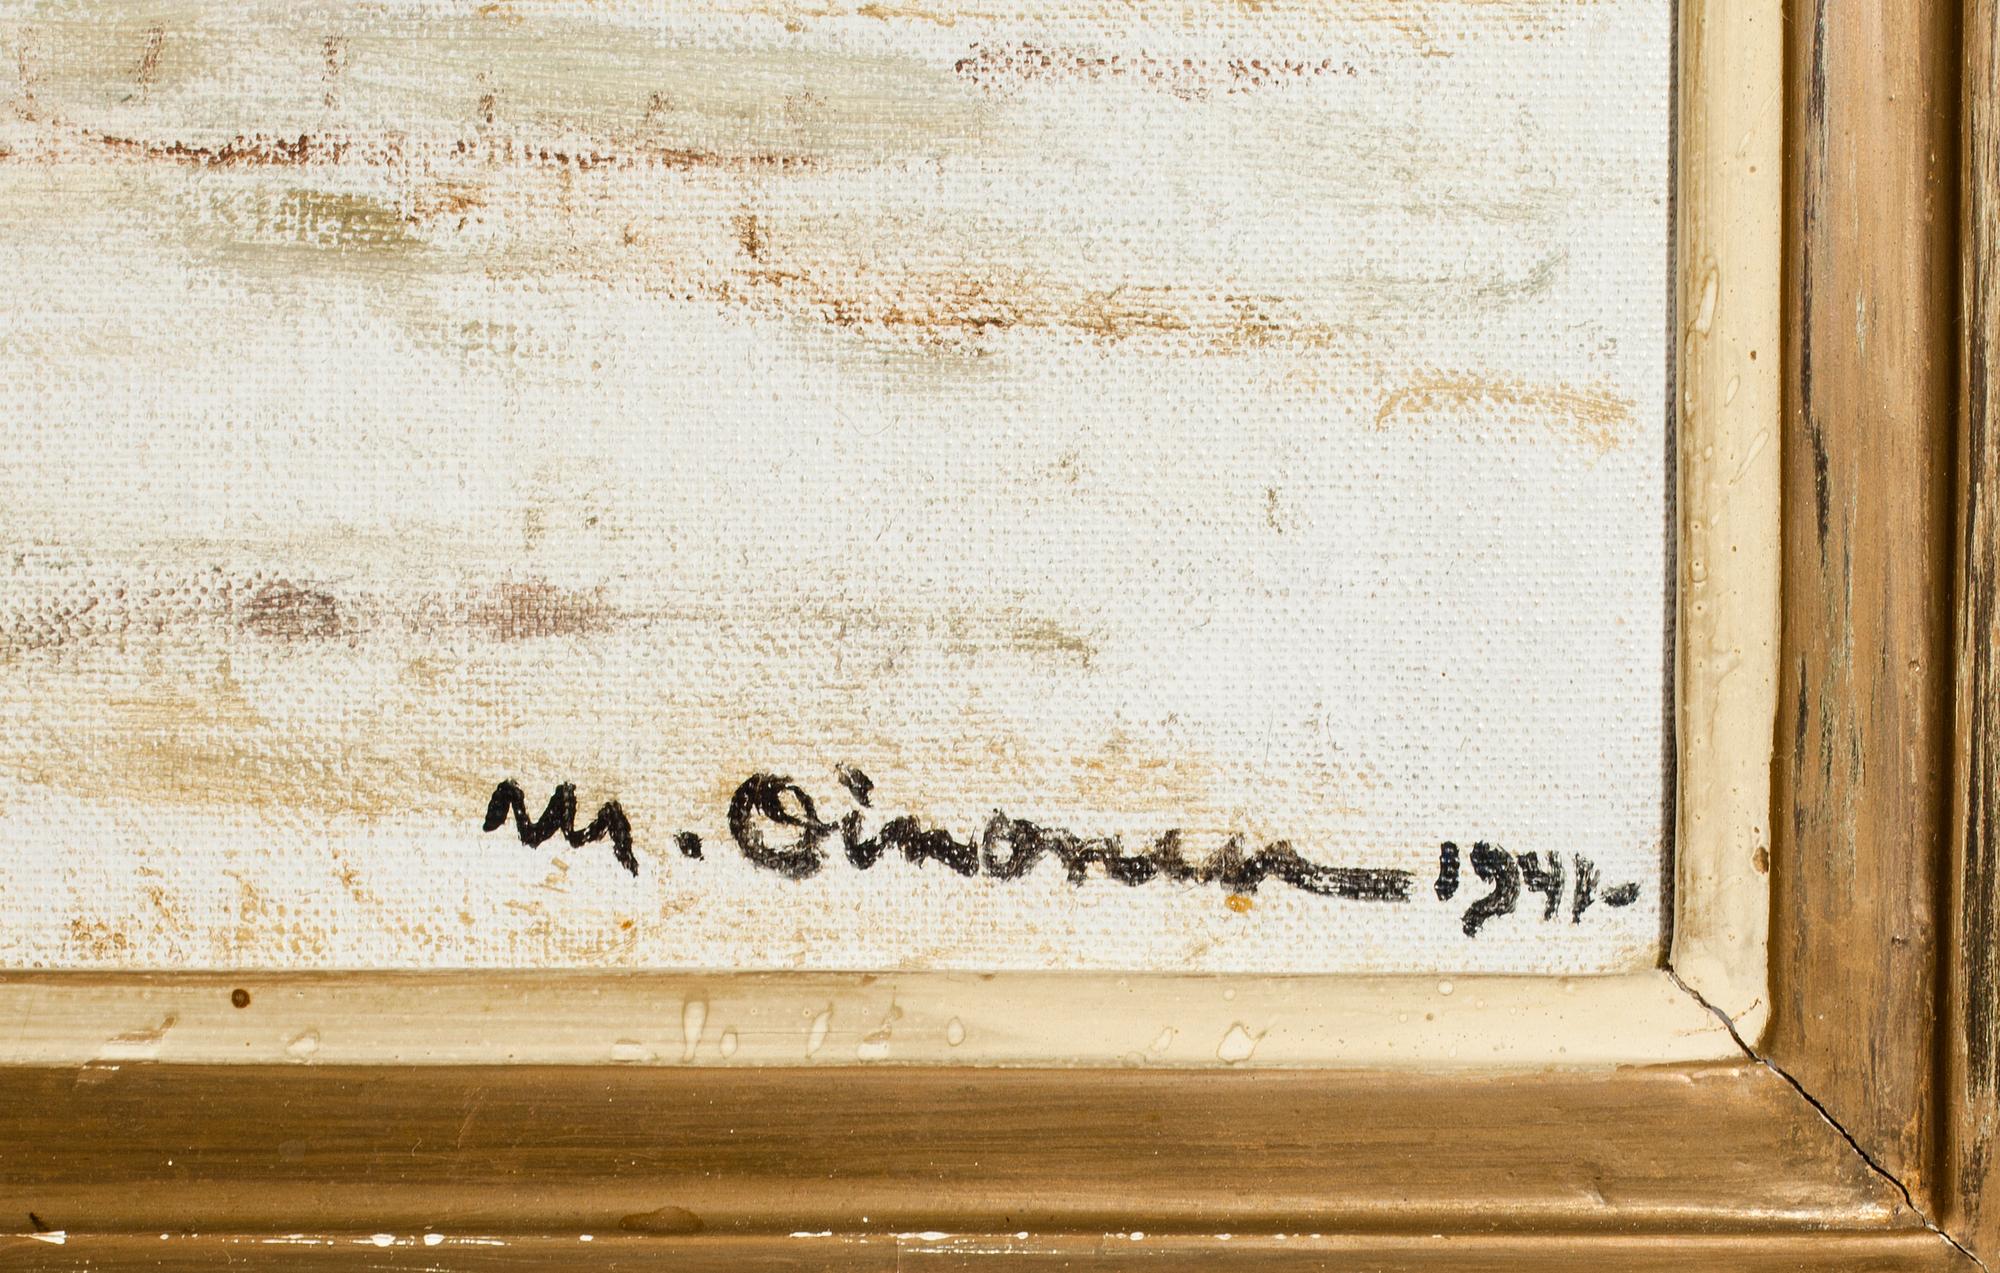 M. Oinonen 1941.